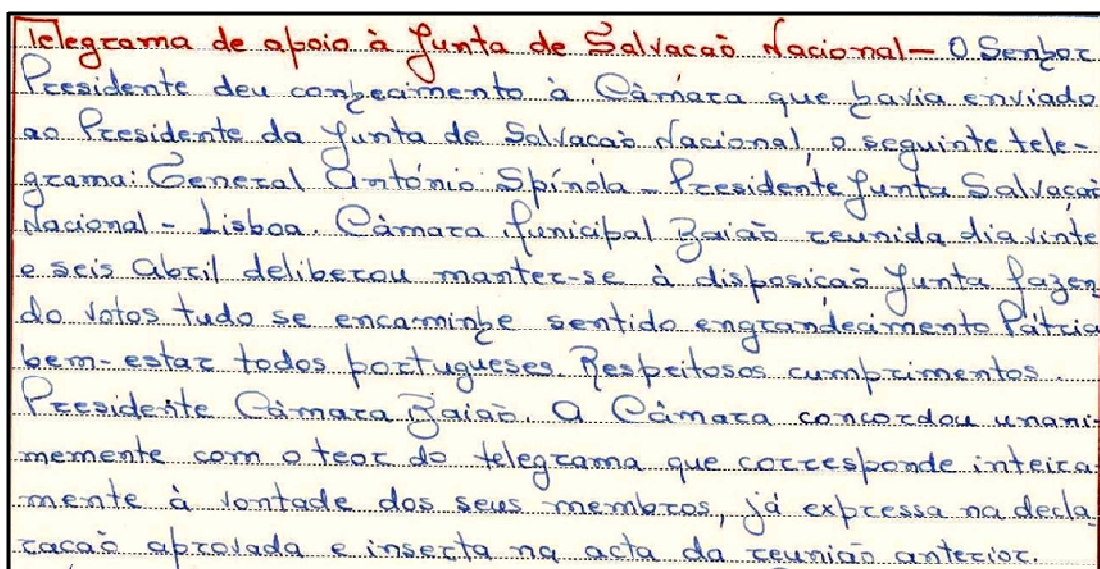 Telegrama de apoio à Junta de Salvação Nacional - O Senhor
Presidente deu conhecimento à Câmara que havia enviado
ao Presidente da Junta de Salvação Nacional, o seguinte tele-
grama: General António Spínola - Presidente Junta Salvação
Nacional - Lisboa. Câmara Municipal Baião reunida dia vinte
e seis Abril deliberou manter-se à disposição Junta fazen
do votos tudo se encaminhe sentido engrandecimento Pátria
bem-estar todos portugueses. Respeitosos cumprimentos.
Presidente Câmara Baião. A Câmara concordou unani-
memente com o teor do telegrama que corresponde inteira-
mente à vontade dos seus membros, já expressa na decla-
ração aprovada e inserta na acta da reunião anterior.